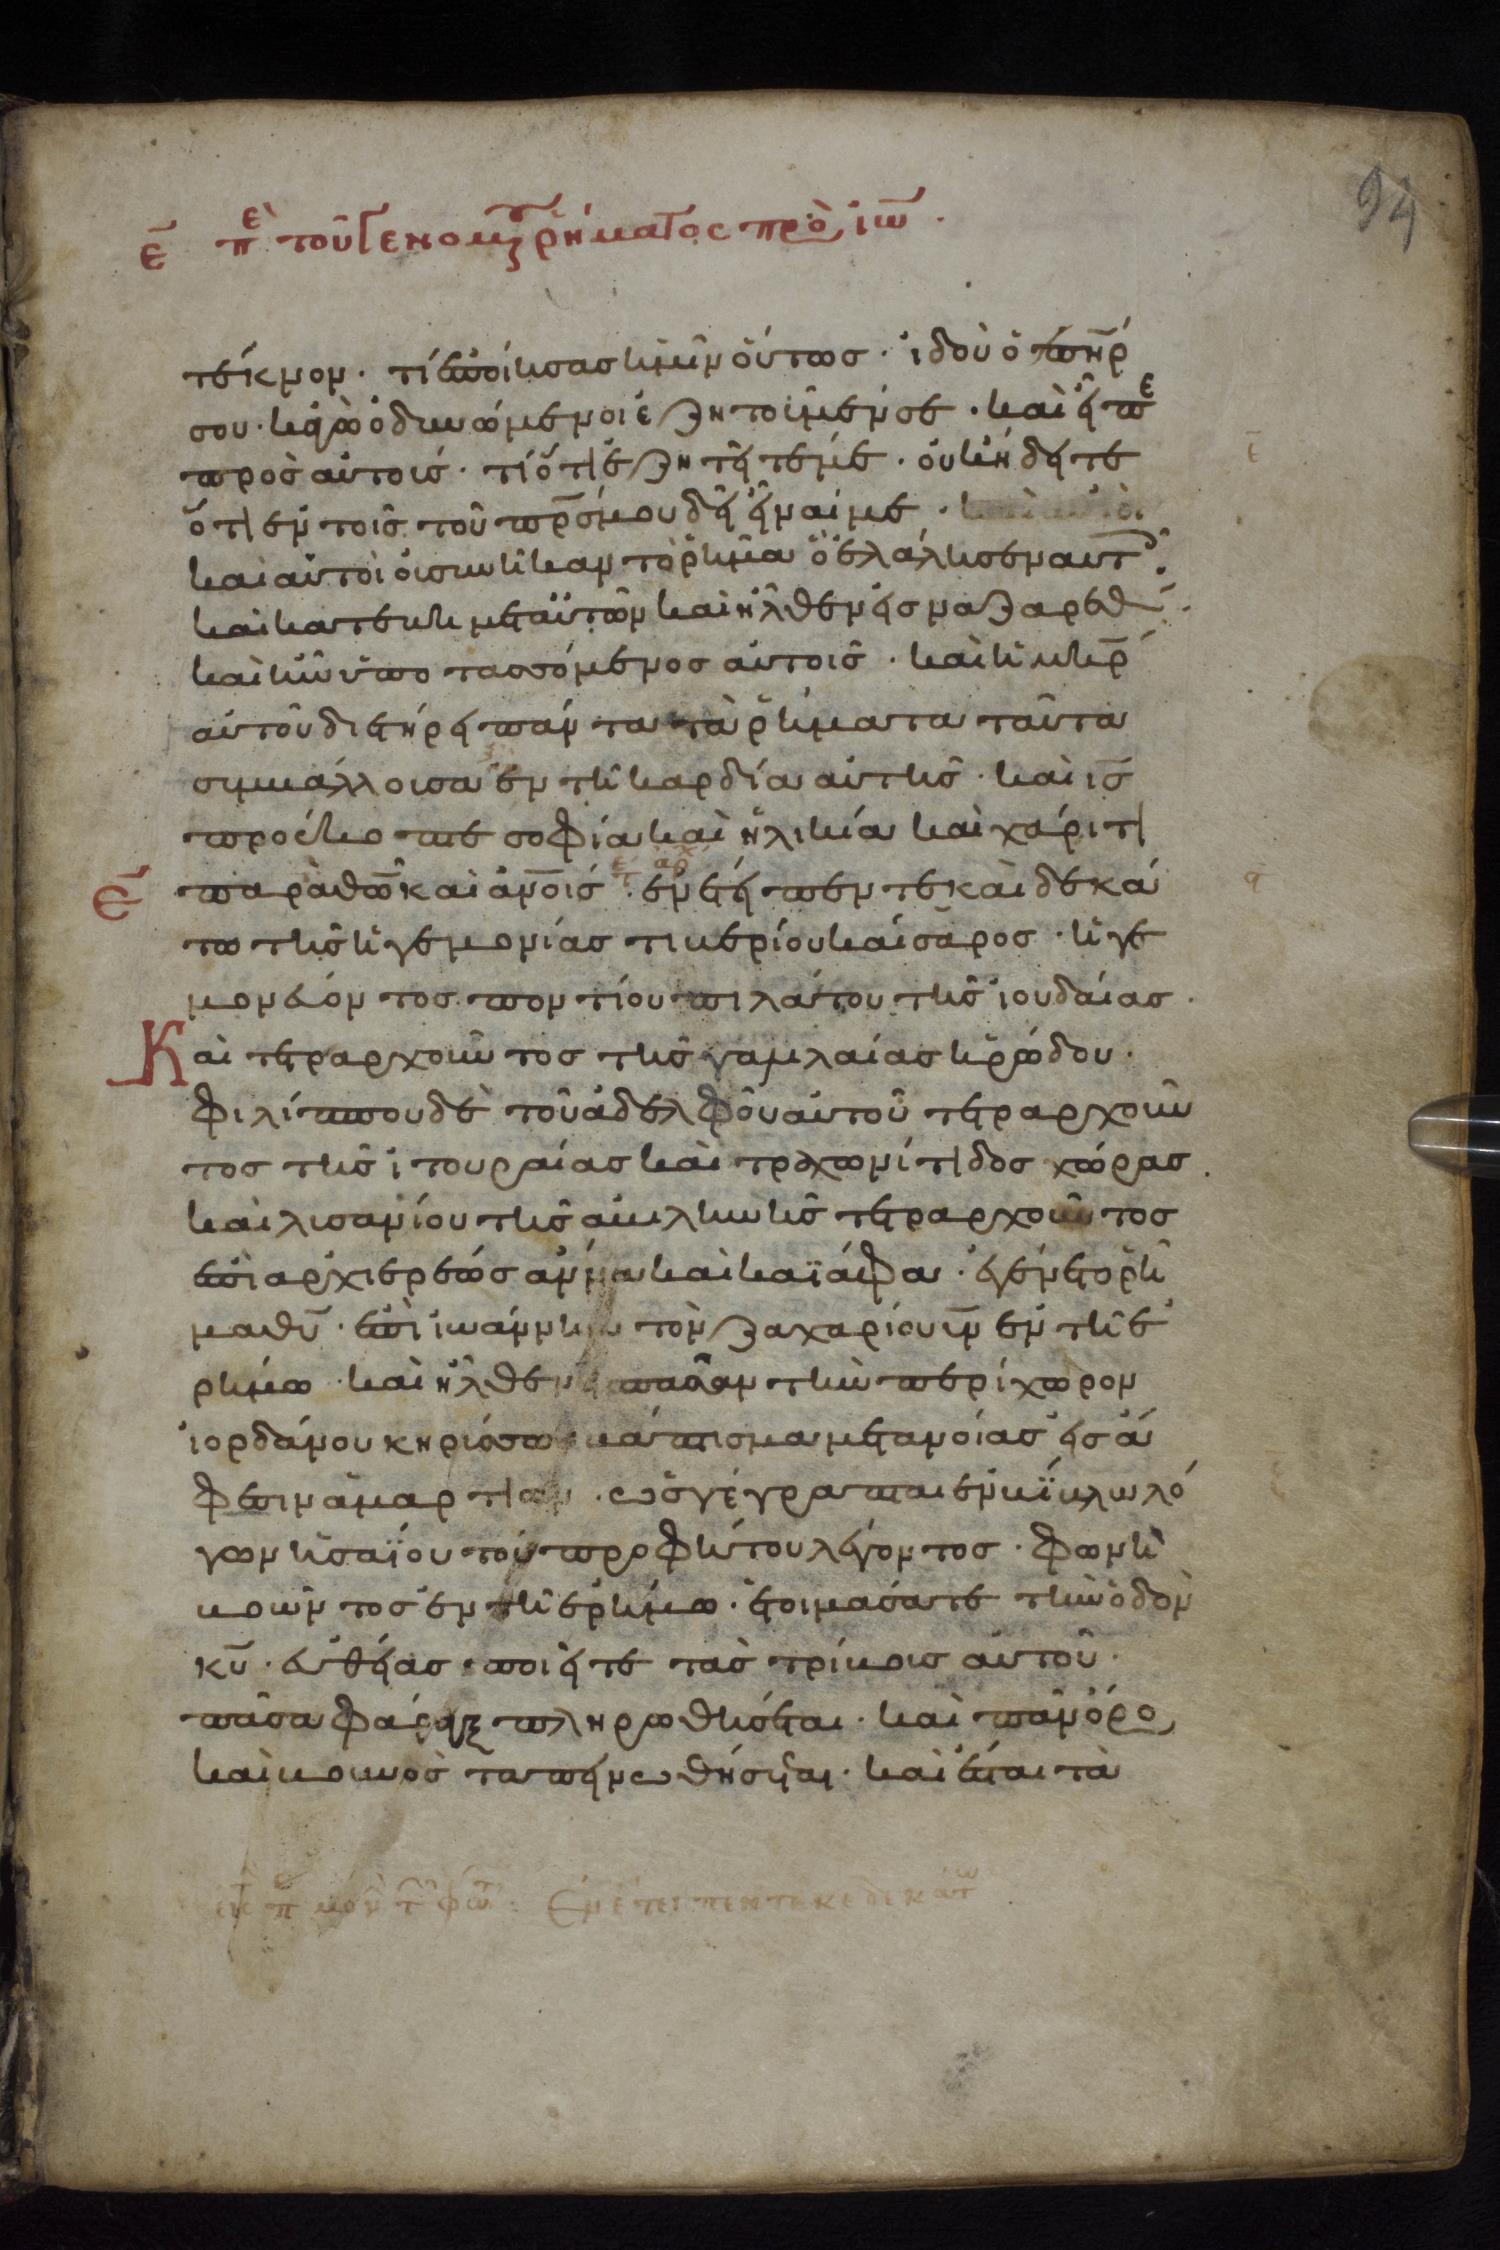 94
ε̅ πὲ τοῦ γενομ ρήματος πρὸ ἰω̅ ·
τέκνον · τί ἐποίησας ἡμῖν οὕτως · ἰδοὺ ὁ πη̅ρ
σου · κἀγὼ ὀδυνώμενοι ἐζητοῦμέν σε · καὶ εἶπε
πρὸς αὐτούς · τί ὅτι ἐζητεῖτέ με · οὐκ ἤδειτε
ὅτι ἐν τοῖς τοῦ πρ̅ς μου δεῖ εἶναί με ·
καὶ αὐτοὶ οὐ συνῆκαν τὸ ῥῆμα ὃ ἐλάλησεν αυτ
καὶ κατέβη μετ αὐτῶν καὶ ἦλθεν εἰς ναζαρεθ ·
καὶ ἦν ὑποτασσόμενος αὐτοῖς · καὶ ἡ μη̅ρ
αὐτοῦ διετήρει πάντα τὰ ῥήματα ταῦτα
συμβάλλουσα ἐν τῇ καρδία αὐτῆς · καὶ ι̅ς
προέκοπτε σοφία καὶ ἡλικία καὶ χάριτι
ε̅ παρὰ θω̅ καὶ ἀν̅οις · ἐν ἔτει πεντεκαιδεκά
τω τῆς ἡγεμονίας τιβερίου καίσαρος · ἡγε
μονεύοντος ποντίου πιλάτου τῆς ἰουδαίας ·
Καὶ τετραρχοῦντος τῆς γαλιλαίας ἡρώδου ·
φιλίππου δὲ τοῦ ἀδελφοῦ αὐτοῦ τετραρχοῦν
τος τῆς ἰτουραίας καὶ τραχωνίτιδος χώρας ·
καὶ λισανίου τῆς ἀβιληνῆς τετραρχοῦντος
ἐπὶ ἀρχιερέως ἄννα καὶ καϊάφα · ἐγένετο ῥῆ
μα θυ̅ · ἐπὶ ἰωάννην τὸν ζαχαρίου υι̅ν ἐν τῇ ἐ
ρήμω · καὶ ἦλθεν εἰς πᾶσαν τὴν περίχωρον
ἰορδάνου κηρύσσων βάπτισμα μετανοίας εἰς ἄ
φεσιν ἁμαρτιῶν · ὡς γέγραπται ἐν βίβλω λό
γων ἡσαΐου τοῦ προφήτου λέγοντος · φωνὴ
βοῶντος ἐν τῇ ἐρήμω · ἑτοιμάσατε τὴν ὁδὸν
κυ̅ · εὐθείας ποιεῖτε τὰς τρίβους αὐτοῦ ·
πᾶσα φάραγξ πληρωθήσεται · καὶ πᾶν ὄρο
καὶ βουνὸς ταπεινωθήσεται · καὶ ἔσται τὰ
Ἐν ἔτει πεντεκεδεκάτω